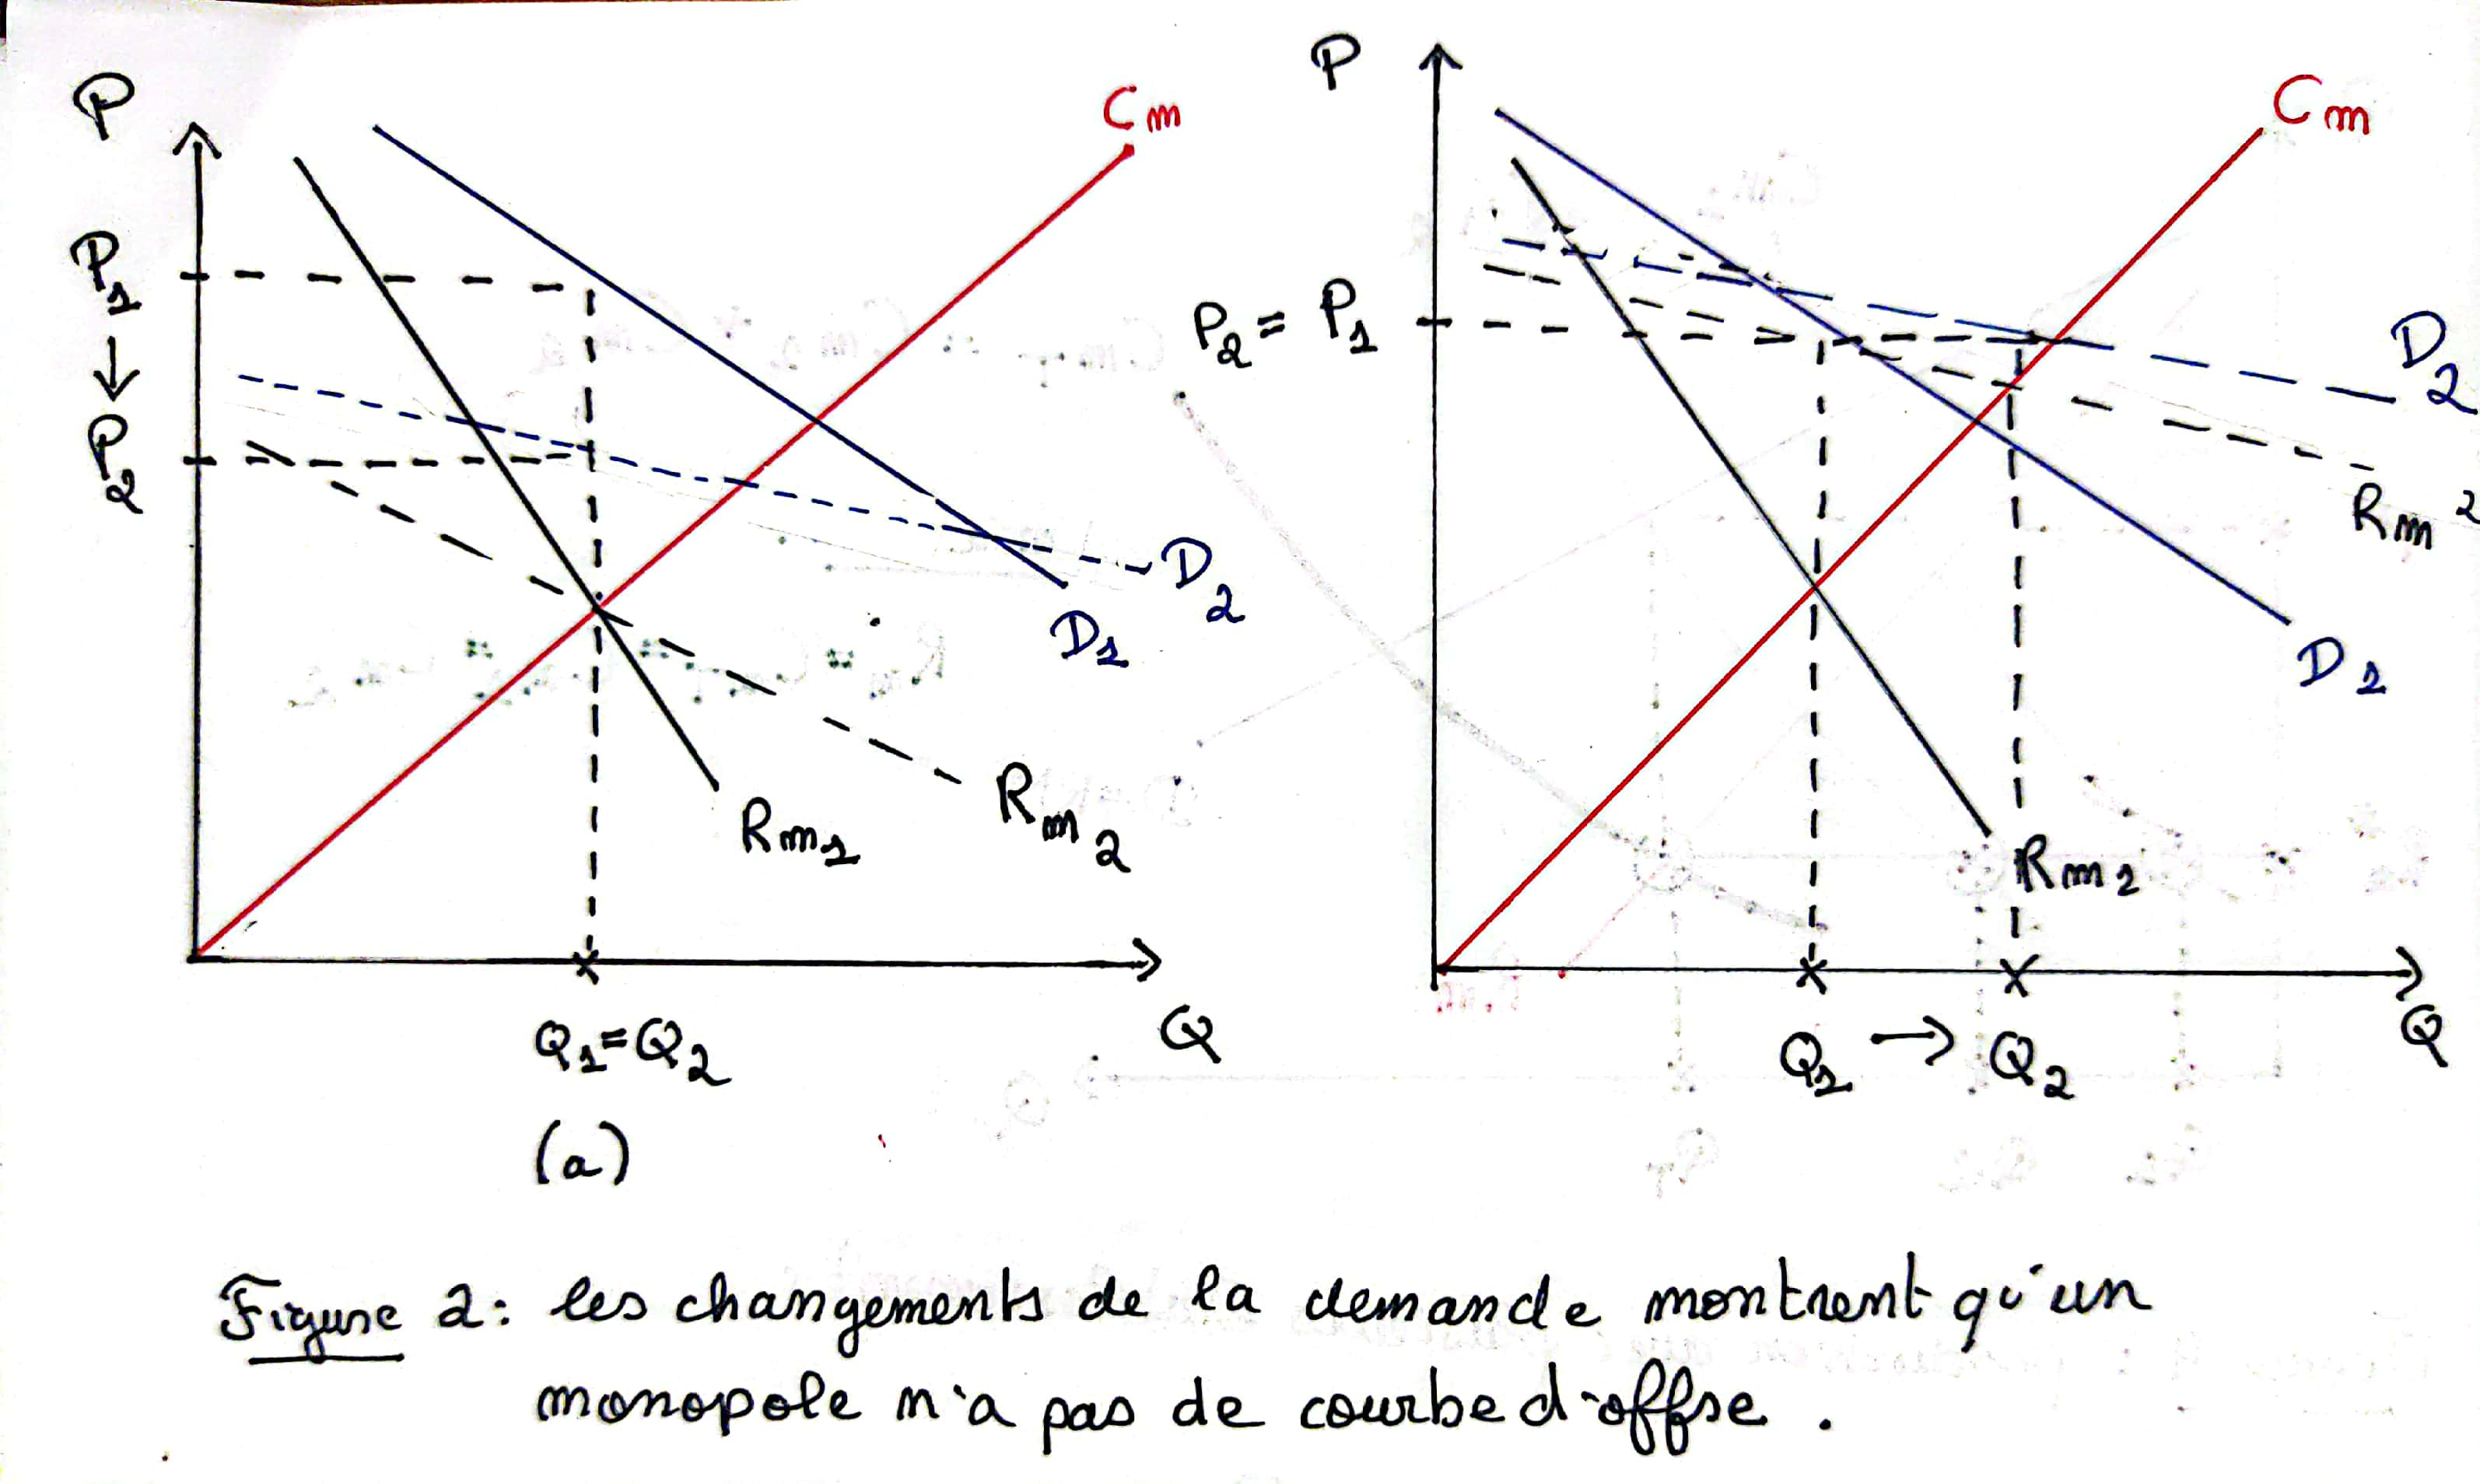 P
P1
↓
P2
Cm
D2
D1
Rm1
Rm2
Q1=Q2
Q
(a)
P
P2 = P1
Cm
D2
Rm2
D1
Rm1
Q1 → Q2
Q
Figure 2: les changements de la demande montrent qu'un
monopole n'a pas de courbe d'offre.